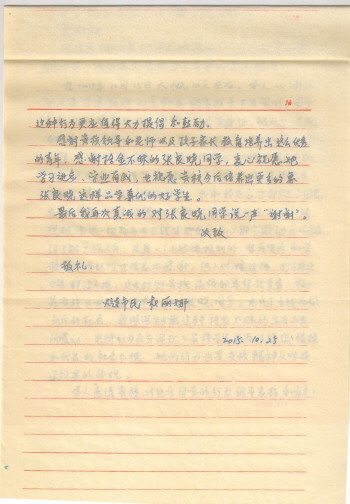 这种行为更应值得大力提倡和鼓励。
感谢贵校领导和老师以及孩子家长教育培养出这么优秀
的青年,感谢拾金不昧的张良晓同学,衷心祝愿她
学习进步、学业有成,也祝愿贵校今后培养出更多的象
张良晓这样品学兼优的好学生。
最后我再次真诚的对张良晓同学说一声“谢谢”。
此致
敬礼
市民
2015.10.25